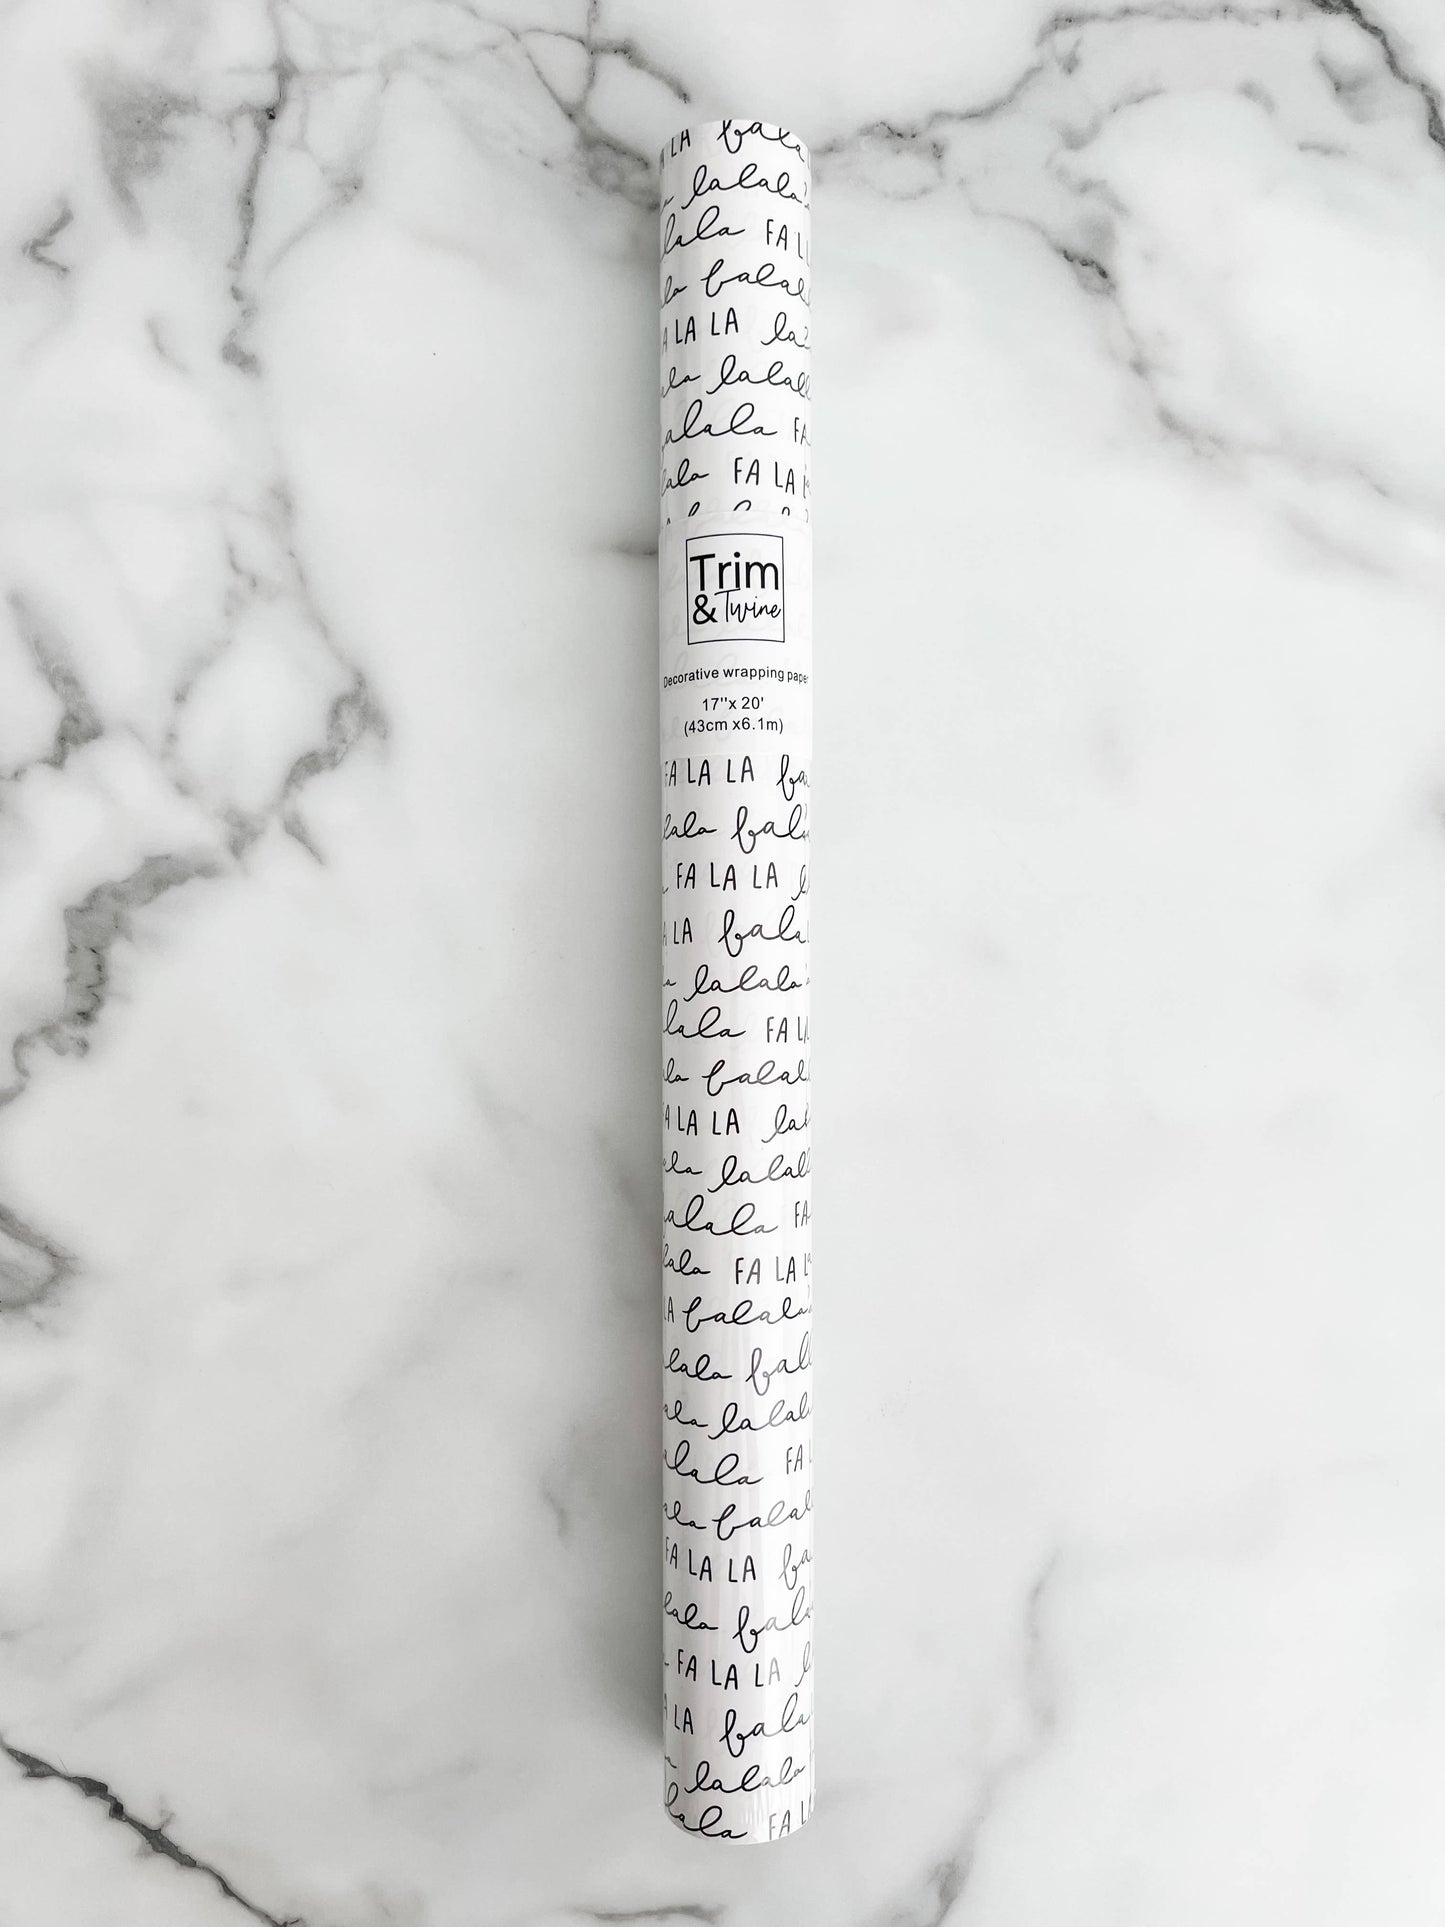 LA fala
lalala
lala FA L
la falal
LA LA la
la lalal
alala FA
lala FA LA
Trim
& Twine
Decorative wrapping paper
17"x 20'
(43cm x6.1m)
FA LA LA fa
lala fal
FA LA LA
LA fala
lalala
lala FA L
la falal
A LA LA la
la lalal
alala FA
lala FA LA
A falala
lala fal
ala lalal
alala FA
ala falal
FA LA LA fa
lala fal
FA LA LA
LA fala
lalala
lala FA L